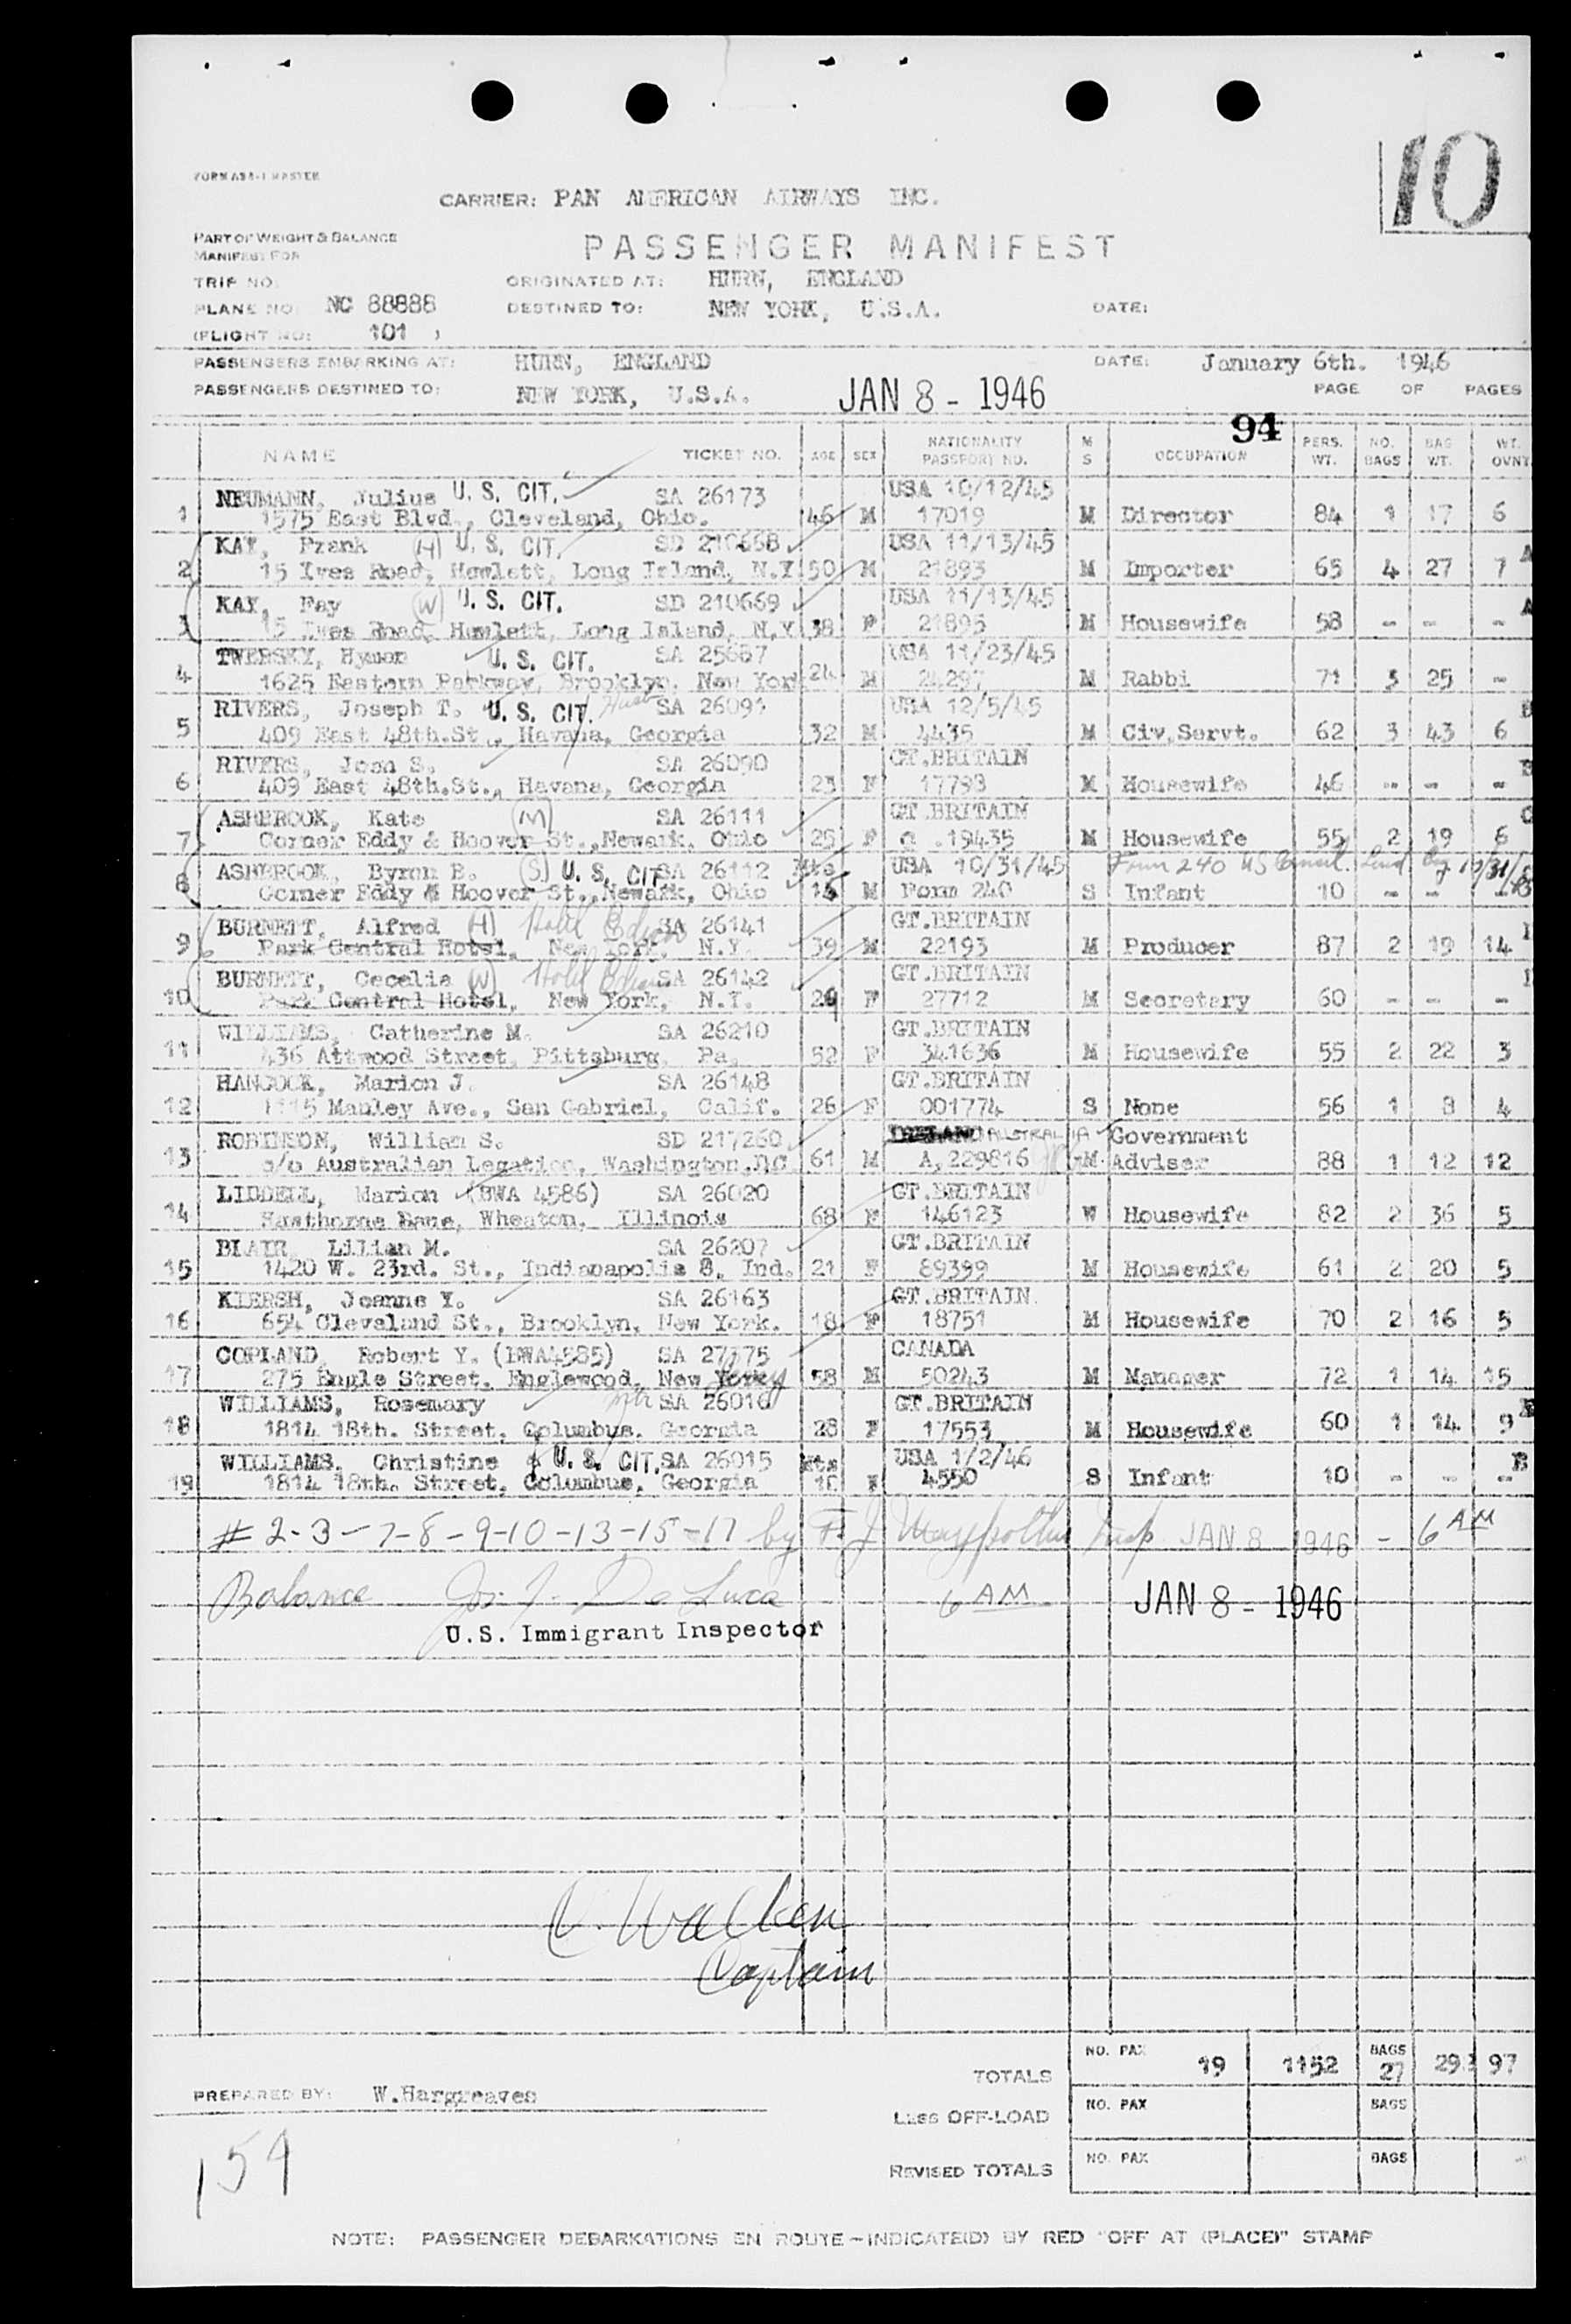 10
FORM ASB-1 MASTER
CARRIER: PAN AMERICAN AIRWAYS INC.
PART OF WEIGHT & BALANCE
MANIFEST FOR
PASSENGER MANIFEST
TRIP NO. ORIGINATED AT: HURN, ENGLAND
PLANE NO: NC 88888 DESTINED TO: NEW YORK, U.S.A. DATE:
(FLIGHT NO: 101 )
PASSENGERS EMBARKING AT: HURN, ENGLAND DATE: January 6th. 1946
PASSENGERS DESTINED TO: NEW YORK, U.S.A. JAN 8 - 1946 PAGE OF PAGES
94
NAME TICKET NO. AGE SEX NATIONALITY PASSPORT NO. M S OCCUPATION PERS. WT. NO. BAGS BAG WT. WT. OVNT
NEUMANN, Julius U. S. CIT. SA 26173 USA 10/12/45
1 1575 East Blvd., Cleveland, Ohio. 46 M 17019 M Director 84 1 17 6
KAY, Frank (H) U. S. CIT. SD 210668 USA 11/13/45
2 15 Ives Road, Hewlett, Long Island, N.Y 50 M 21893 M Importer 65 4 27 7 A
KAY, Fay (W) U. S. CIT. SD 210669 USA 11/13/45
3 15 Ives Road, Hewlett, Long Island, N.Y 38 F 21895 M Housewife 58 - - - A
TWERSKY, Hyman U. S. CIT. SA 25687 USA 11/23/45
4 1625 Eastern Parkway, Brooklyn, New York 24 M 24297 M Rabbi 71 3 25 -
RIVERS, Joseph T. U. S. CIT. SA 26091 USA 12/5/45
5 409 East 48th.St., Havana, Georgia 32 M 4435 M Civ.Servt. 62 3 43 6
RIVERS, Joan S. SA 26090 GT.BRITAIN
6 409 East 48th.St., Havana, Georgia 23 F 17793 M Housewife 46 - - -
ASHBROOK, Kate (M) SA 26111 GT.BRITAIN
7 Corner Eddy & Hoover St.,Newark, Ohio 25 F 19435 M Housewife 55 2 19 6
ASHBROOK, Byron B. (S) U. S. CIT. SA 26112 USA 10/31/45 Form 240 US Consul. 10/31/45
8 Corner Eddy & Hoover St.,Newark, Ohio M Form 240 S Infant 10 - -
BURNETT, Alfred (H) Hotel Edison SA 26141 GT.BRITAIN
9 Park Central Hotel, New York, N.Y. 39 M 22193 M Producer 87 2 19 14
BURNETT, Cecelia (W) Hotel Edison SA 26142 GT.BRITAIN
10 Park Central Hotel, New York, N.Y. F 27712 M Secretary 60 - - -
WILLIAMS, Catherine M. SA 26210 GT.BRITAIN
11 436 Attwood Street, Pittsburg, Pa. 52 F 341636 M Housewife 55 2 22 3
HANCOCK, Marion J. SA 26148 GT.BRITAIN
12 1115 Manley Ave., San Gabriel, Calif. 26 F 001774 S None 56 1 8 4
ROBINSON, William S. SD 217260 AUSTRALIA Government
13 c/o Australian Legation, Washington.D.C. 61 M A.229816 M Adviser 88 1 12 12
LIDDELL, Marion (BWA 4586) SA 26020 GT.BRITAIN
14 Hawthorne Lane, Wheaton, Illinois 68 F 146123 W Housewife 82 2 36 5
BLAIR, Lilian M. SA 26207 GT.BRITAIN
15 1420 W. 23rd. St., Indianapolis 8, Ind. 21 F 89399 M Housewife 61 2 20 5
KIERSH, Jeanne Y. SA 26163 GT.BRITAIN
16 654 Cleveland St., Brooklyn, New York. 18 F 18751 M Housewife 70 2 16 5
COPLAND, Robert Y. (BWA4585) SA 27375 CANADA
17 275 Engle Street, Englewood, New York Jersey 58 M 50243 M Manager 72 1 14 15
WILLIAMS, Rosemary SA 26016 GT.BRITAIN
18 1814 18th. Street, Columbus, Georgia 28 F 17553 M Housewife 60 1 14 9
WILLIAMS, Christine U. S. CIT. SA 26015 Mts USA 1/2/46
19 1814 18th. Street, Columbus, Georgia F 4550 S Infant 10 - - -
# 2-3-7-8-9-10-13-15-17 by F. J. Insp JAN 8 1946 - 6 AM
Balance Jos. J. De Luca 6 AM JAN 8 - 1946
U.S. Immigrant Inspector
Captain
TOTALS NO. PAX 19 1152 BAGS 27 293 97
PREPARED BY: W.Hargreaves
LESS OFF-LOAD NO. PAX BAGS
REVISED TOTALS NO. PAX BAGS
159
NOTE: PASSENGER DEBARKATIONS EN ROUTE - INDICATE(D) BY RED "OFF AT (PLACE)" STAMP